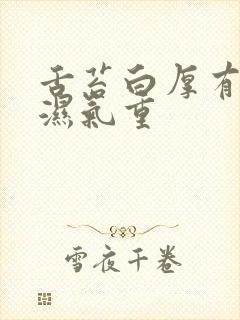 舌苔白厚有
濕氣重
雪夜千卷